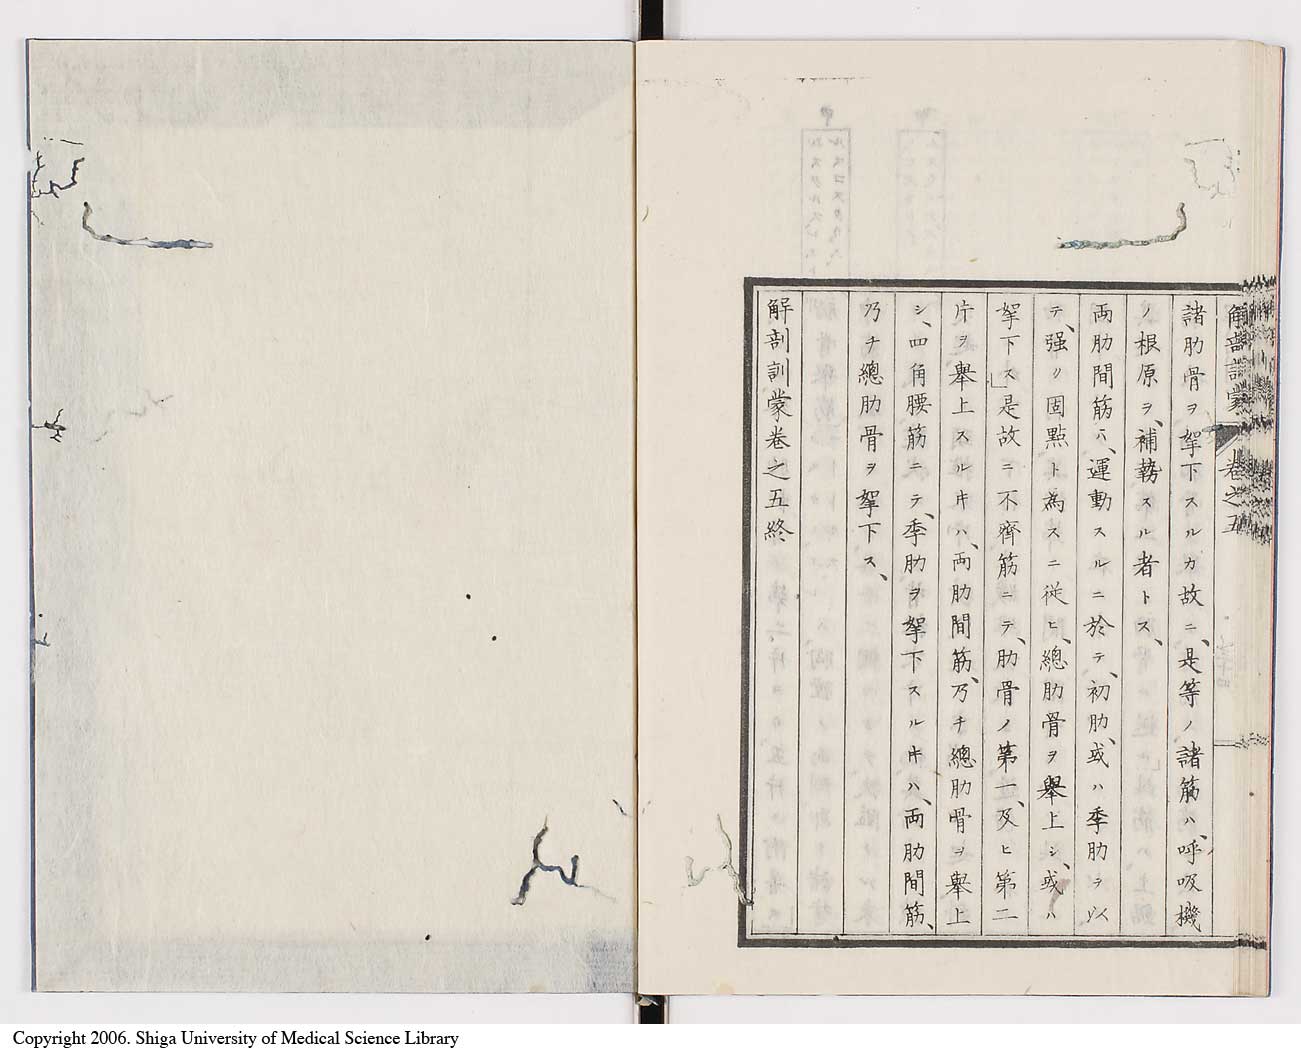 解剖訓蒙 卷之五
諸肋骨ヲ挐下スルカ故ニ、是等ノ諸筋ハ、呼吸機
ノ根原ヲ、補勢スル者トス、
両肋間筋ハ、運動スルニ於テ、初肋、或ハ季肋ヲ以
テ、强ノ固點ト為スニ従ヒ、總肋骨ヲ舉上シ、或ハ
挐下ス」是故ニ不齊筋ニテ、肋骨ノ第一、及ヒ第二
片ヲ舉上スルキハ、両肋間筋、乃チ總肋骨ヲ舉上
シ、四角腰筋ニテ、季肋ヲ挐下スルキハ、両肋間筋、
乃チ總肋骨ヲ挐下ス、
解剖訓蒙卷之五終
Copyright 2006. Shiga University of Medical Science Library